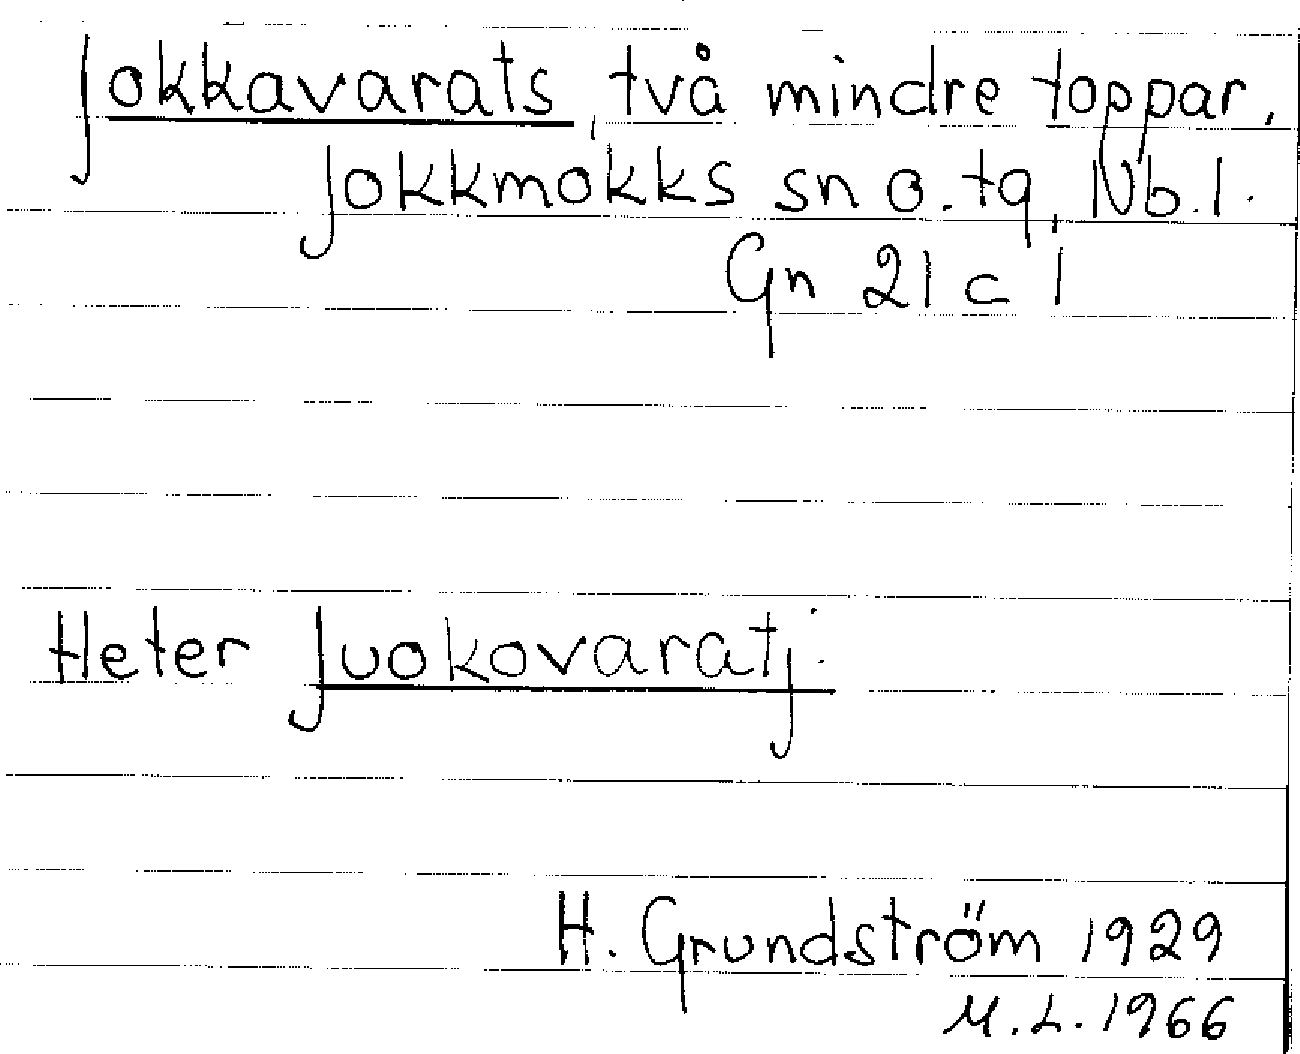 Jokkavarats, två mindre toppar,
Jokkmokks sn o. tg, Nb. l.
Gn 21 c 1
Heter Juokovaratj.
H. Grundström 1929
M.L. 1966